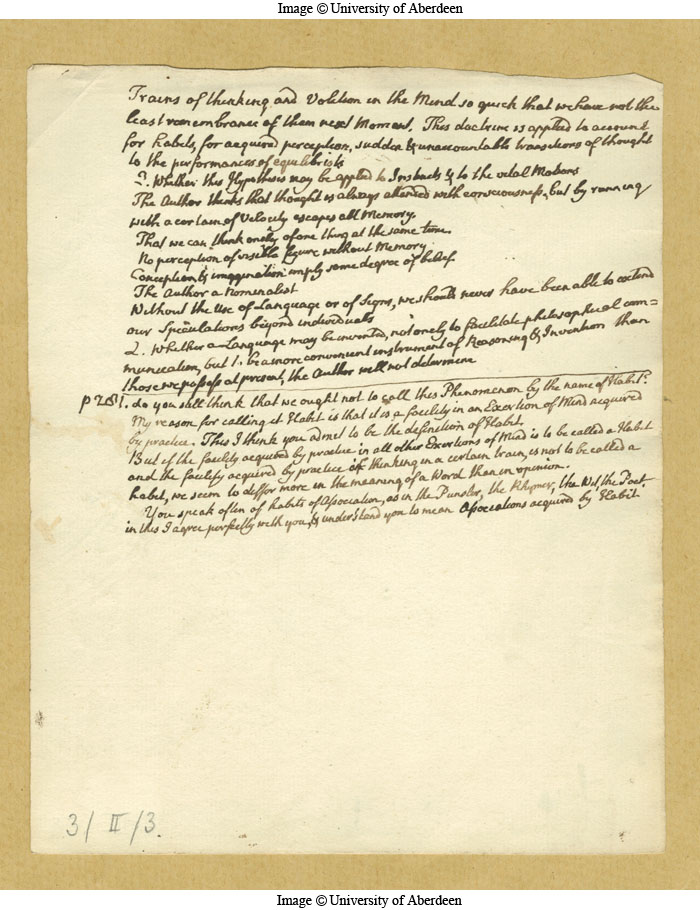 Image © University of Aberdeen
Trains of thinking and Volition in the Mind so quick that we have not the
least remembrance of them next Moment. This doctrine is applied to account
for habits, for acquired perception, sudden & unaccountable transitions of thought
to the performances of equilibrists
2. Whether this Hypothesis may be applied to Instincts & to the vital Motions
The Author thinks that thought is always attended with consciousness, but by running
with a certain of Velocity escapes all Memory.
That we can think onely of one thing at the same time.
No perception of visible figure without Memory.
Conception & imagination imply some degree of belief.
The Author a Nominalist
Without the Use of Language or of Signs, we should never have been able to extend
our Speculations beyond individuals
2. Whether a Language may be invented, not onely to facilitate philosophical com=
munication, but to be a more convenient instrument of Reasoning & Invention than
those we possess at present, the Author will not determine
p 281. do you still think that we ought not to call this Phenomenon by the name of Habit.
My reason for calling it Habit is that it is a facility in an Exertion of Mind acquired
by practice. This I think you admit to be the definition of Habit.
But if the facility acquired by practice in all other Exertions of Mind is to be called a Habit
and the facility acquired by practice of thinking in a certain train, is not to be called a
habit, we seem to differ more in the meaning of a Word than in opinion.
You speak often of habits of Association, as in the Punster, the Rhymer, the Wit, the Poet
in this I agree perfectly with you, & understand you to mean Associations acquired by Habit
3/II/3.
Image © University of Aberdeen